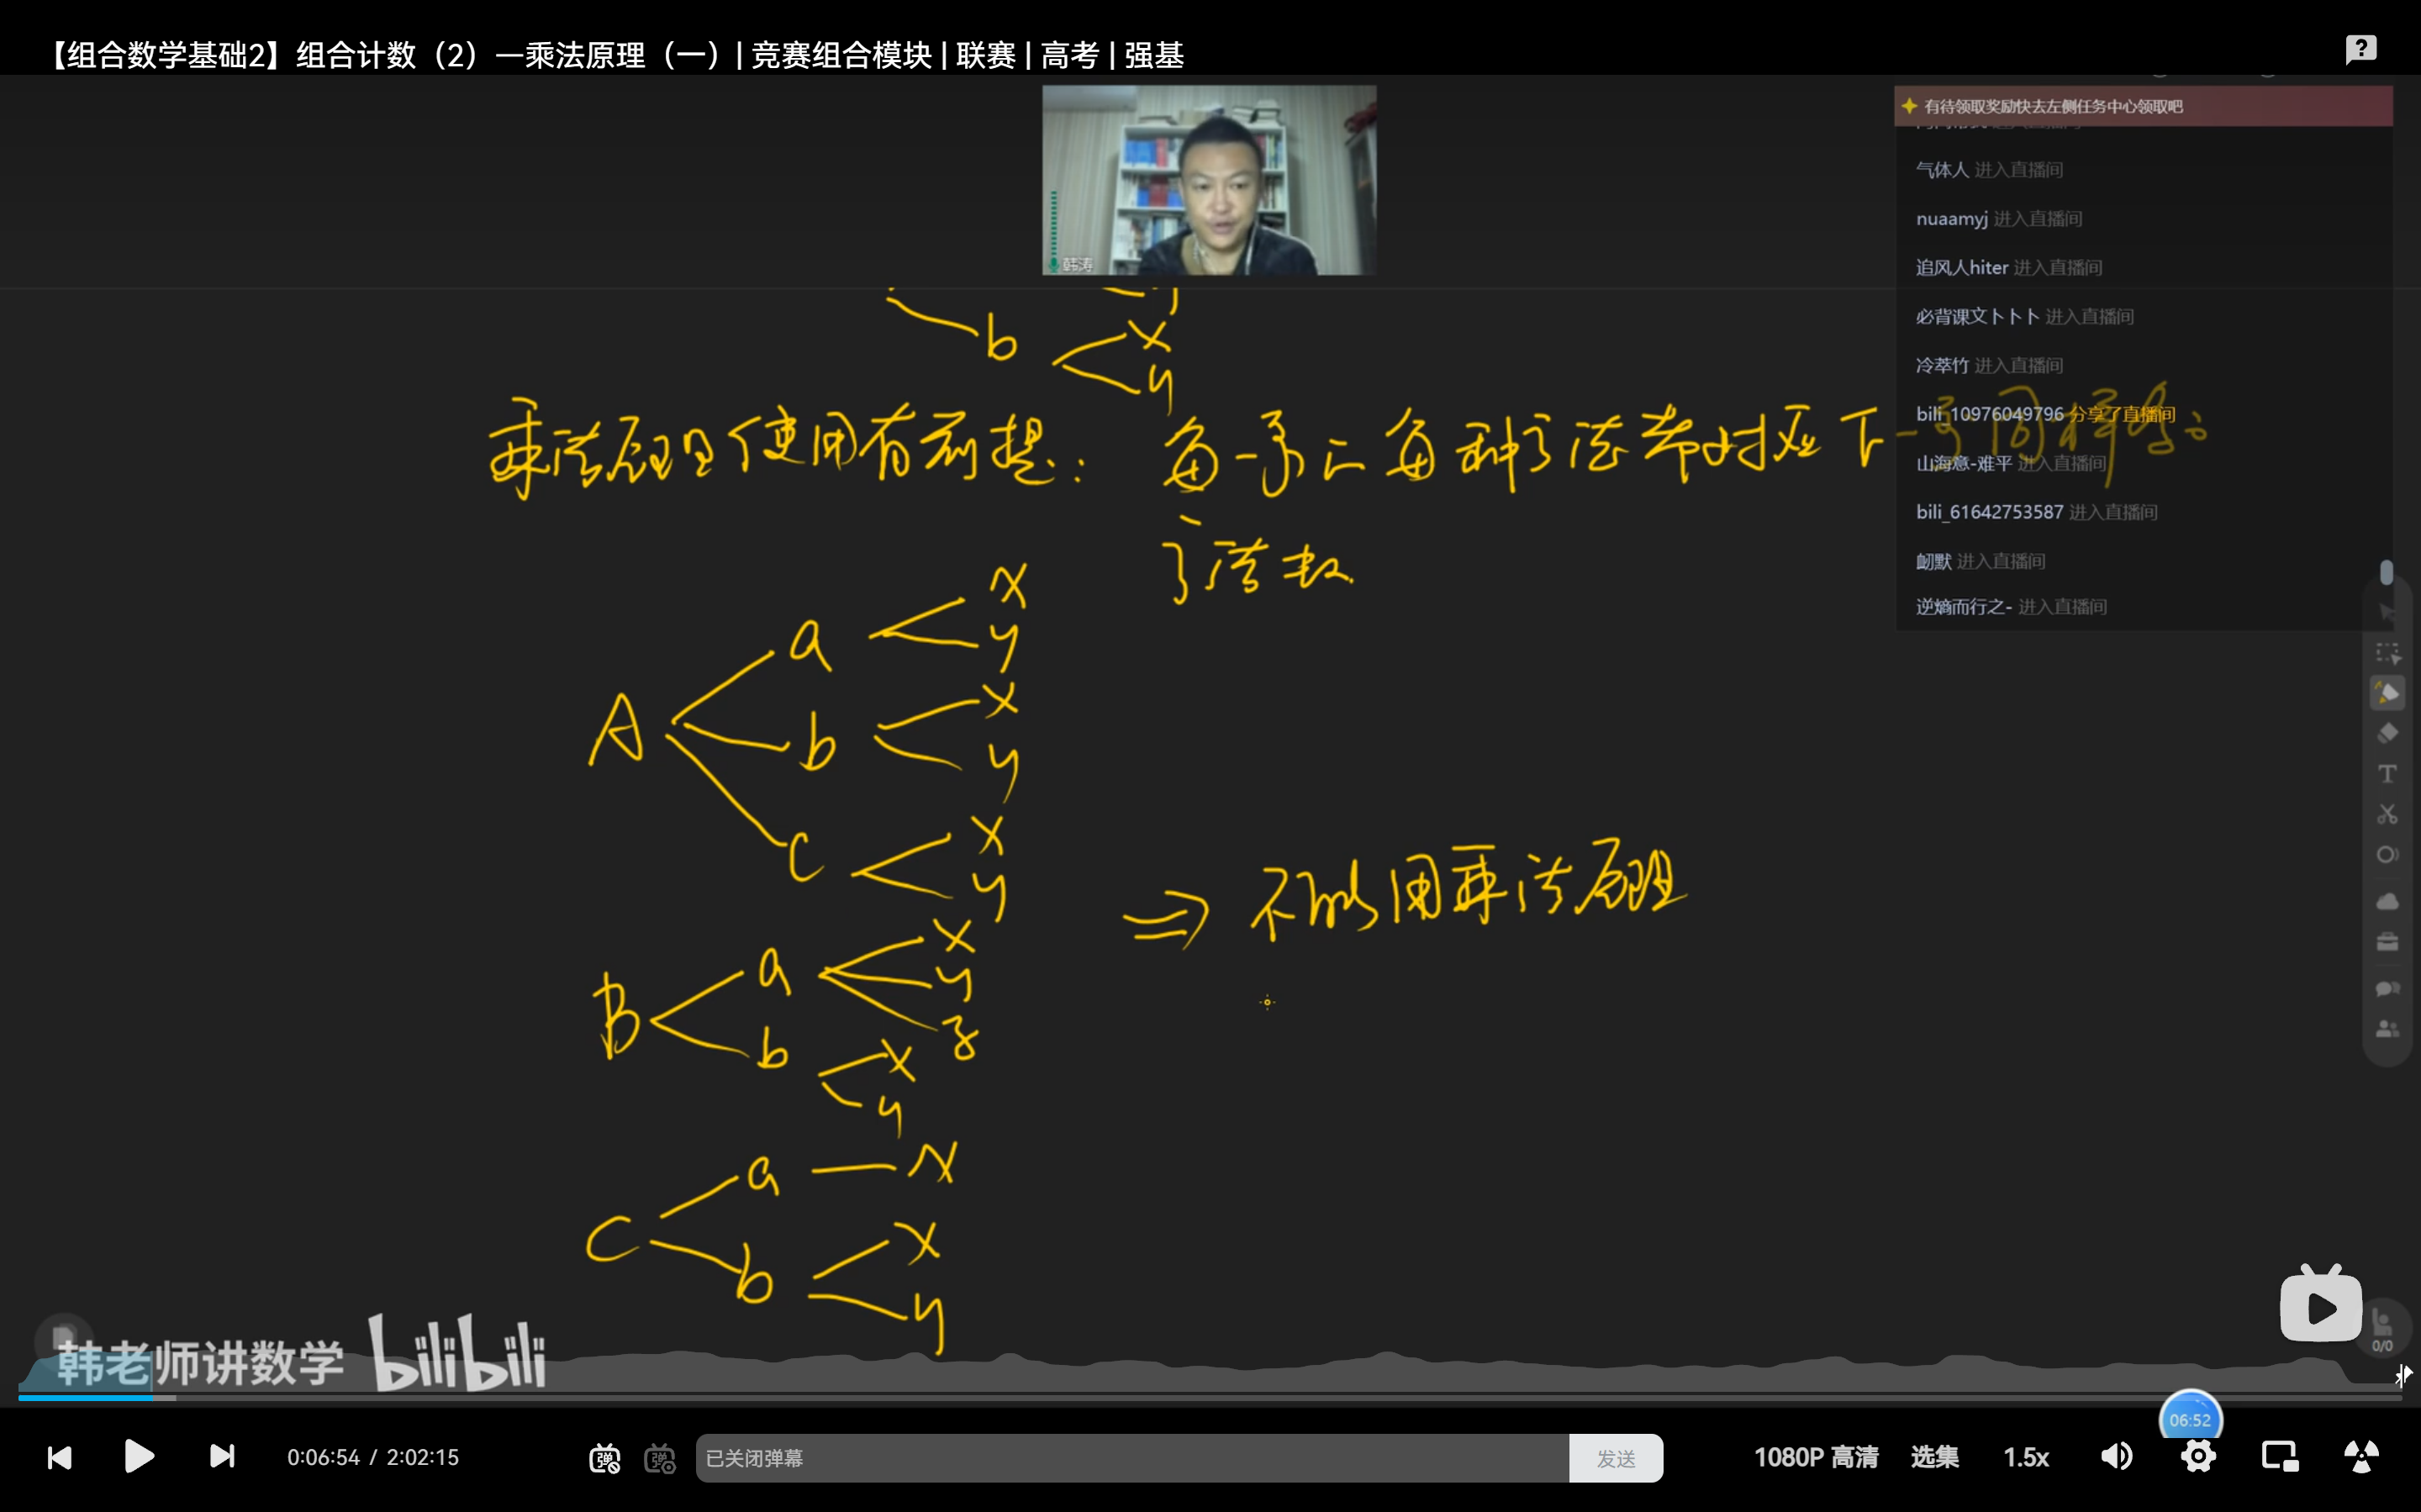 【组合数学基础2】组合计数（2）—乘法原理（一）| 竞赛组合模块 | 联赛 | 高考 | 强基
韩涛
有待领取奖励快去左侧任务中心领取吧
气体人 进入直播间
nuaamyj 进入直播间
追风人hiter 进入直播间
必背课文卜卜卜 进入直播间
冷萃竹 进入直播间
bili_10976049796 分享了直播间
山海意-难平 进入直播间
bili_61642753587 进入直播间
衂默 进入直播间
逆熵而行之- 进入直播间
b x
y
乘法原理使用有前提：每一步的每种方法都对应下一步同样多的
方法数
A a x
y
b x
y
c x
y
B a x
y
z
b x
y
C a x
b x
y
⇒ 不能用乘法原理
韩老师讲数学 bilibili
0/0
06:52
0:06:54 / 2:02:15
弹
弹
已关闭弹幕
发送
1080P 高清
选集
1.5x